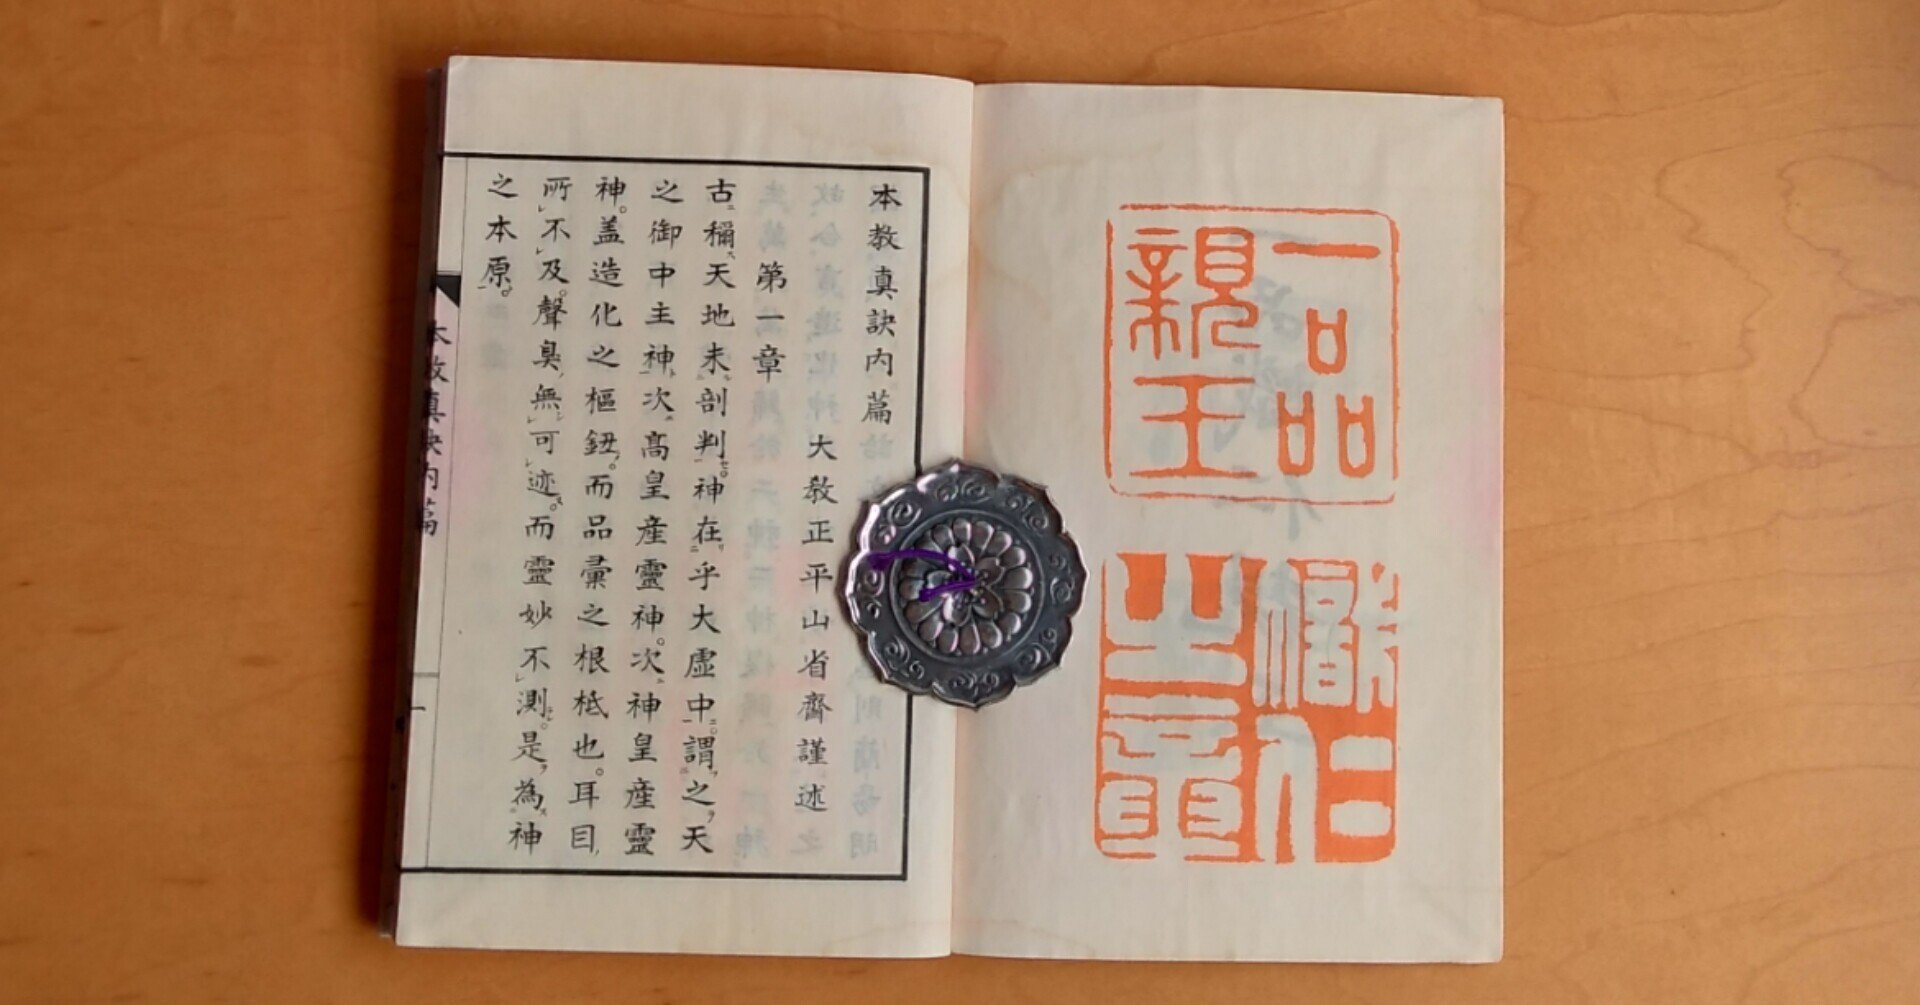 一品
親王
幟仁
之章
本教真訣内篇
大教正平山省齋謹述
第一章
古稱天地未剖判。神在乎大虚中。謂之天
之御中主神。次高皇産靈神。次神皇産靈
神。盖造化之樞鈕。而品彙之根柢也。耳目
所不及。聲臭無可迹。而靈妙不測。是為神
之本原。
本教真訣内篇
一